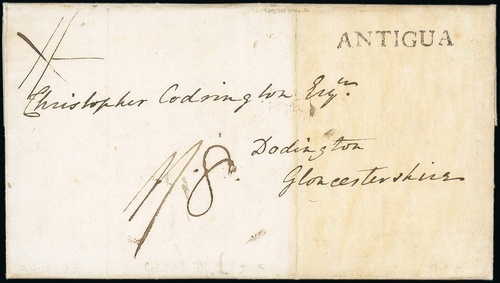 ANTIGUA
Christopher Codrington Esqr.
Dodington
Gloucestershire